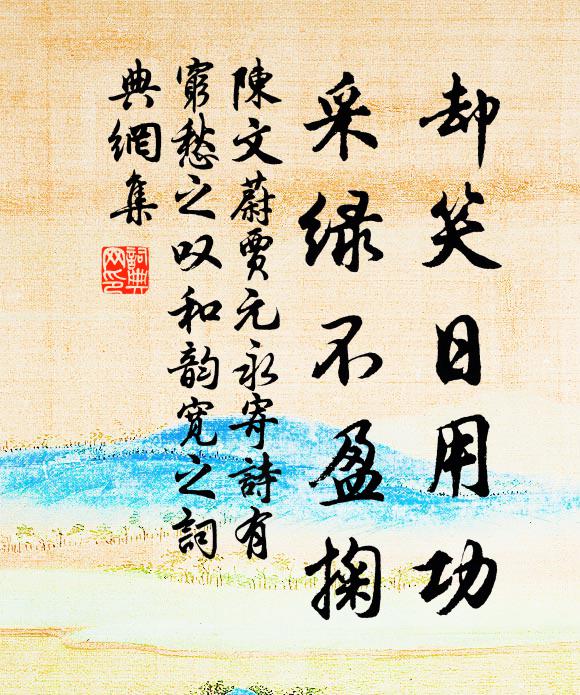 却笑日用功
采绿不盈掬
陳文蔚賈元永寄詩有
窮愁之叹和韵宽之詞
典網集
詞典网印